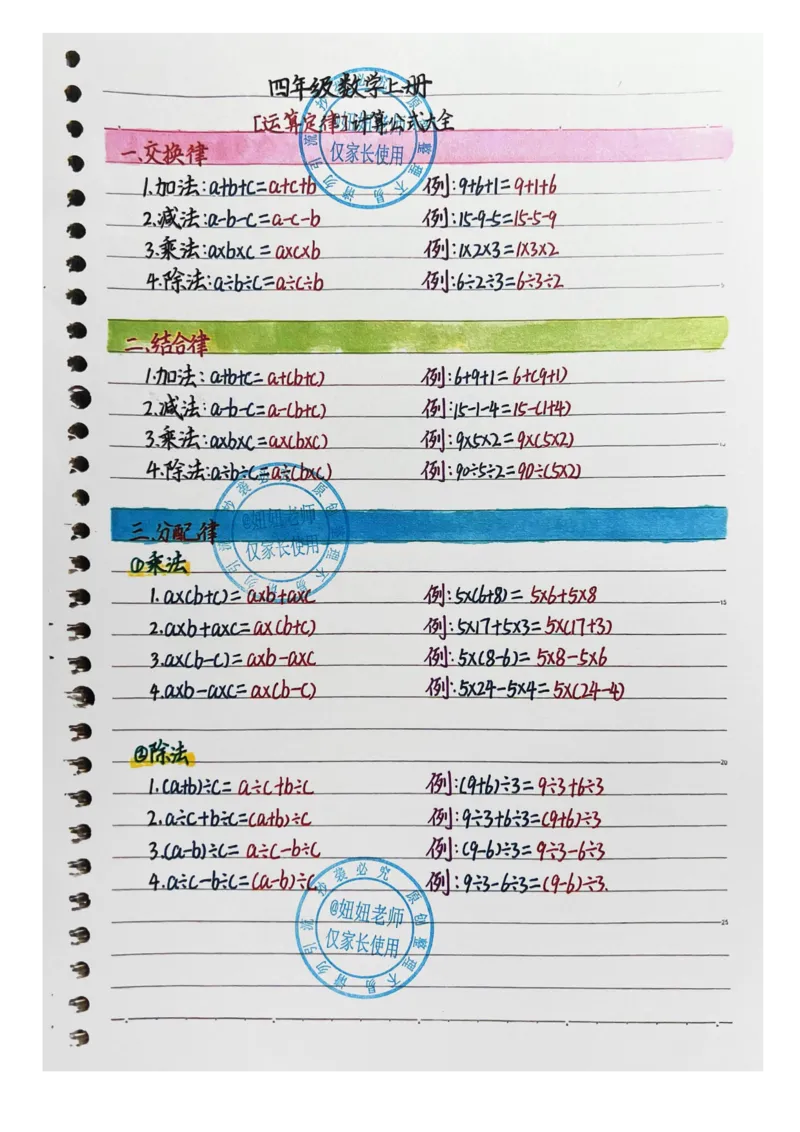 四年级数学上册
[运算定律]计算公式大全
一.交换律
1.加法:a+b+c=a+c+b 例:9+6+1=9+1+6
2.减法:a-b-c=a-c-b 例:15-9-5=15-5-9
3.乘法:a×b×c=a×c×b 例:1×2×3=1×3×2
4.除法:a÷b÷c=a÷c÷b 例:6÷2÷3=6÷3÷2
二.结合律
1.加法:a+b+c=a+(b+c) 例:6+9+1=6+(9+1)
2.减法:a-b-c=a-(b+c) 例:15-1-4=15-(1+4)
3.乘法:a×b×c=a×(b×c) 例:9×5×2=9×(5×2)
4.除法:a÷b÷c=a÷(b×c) 例:90÷5÷2=90÷(5×2)
三.分配律
①乘法
1.a×(b+c)=a×b+a×c 例:5×(6+8)=5×6+5×8
2.a×b+a×c=a×(b+c) 例:5×17+5×3=5×(17+3)
3.a×(b-c)=a×b-a×c 例:5×(8-6)=5×8-5×6
4.a×b-a×c=a×(b-c) 例:5×24-5×4=5×(24-4)
②除法
1.(a+b)÷c=a÷c+b÷c 例:(9+6)÷3=9÷3+6÷3
2.a÷c+b÷c=(a+b)÷c 例:9÷3+6÷3=(9+6)÷3
3.(a-b)÷c=a÷c-b÷c 例:(9-6)÷3=9÷3-6÷3
4.a÷c-b÷c=(a-b)÷c 例:9÷3-6÷3=(9-6)÷3.
原创整理不易请勿引流抄袭必究
@妞妞老师
仅家长使用
15
20
25